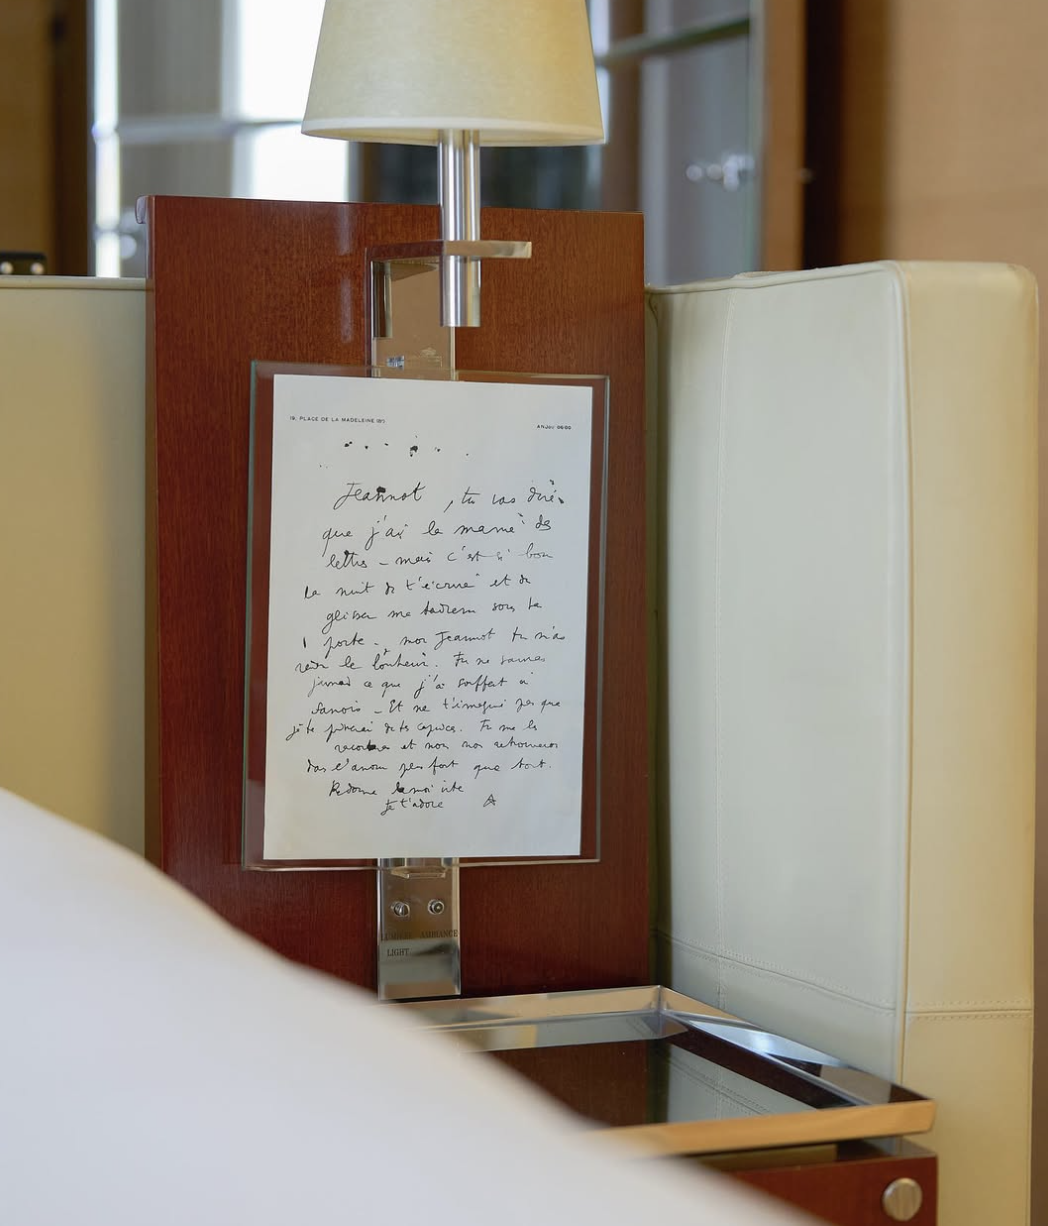 19, PLACE DE LA MADELEINE (8e)
ANJOU
Jeannot, tu vas dire
que j'ai la manie des
lettres - mais c'est si bon
la nuit de t'écrire et de
glisser ma tendresse sous ta
porte - mon Jeannot tu m'as
rendu le bonheur. Tu ne sauras
jamais ce que j'ai souffert
- Et ne t'imagine pas que
je te priverai de tes caprices. Tu me les
raconteras et nous nous retrouverons
dans l'amour plus fort que tout.
Redonne le moi vite
Je t'adore
AMBIANCE
LIGHT